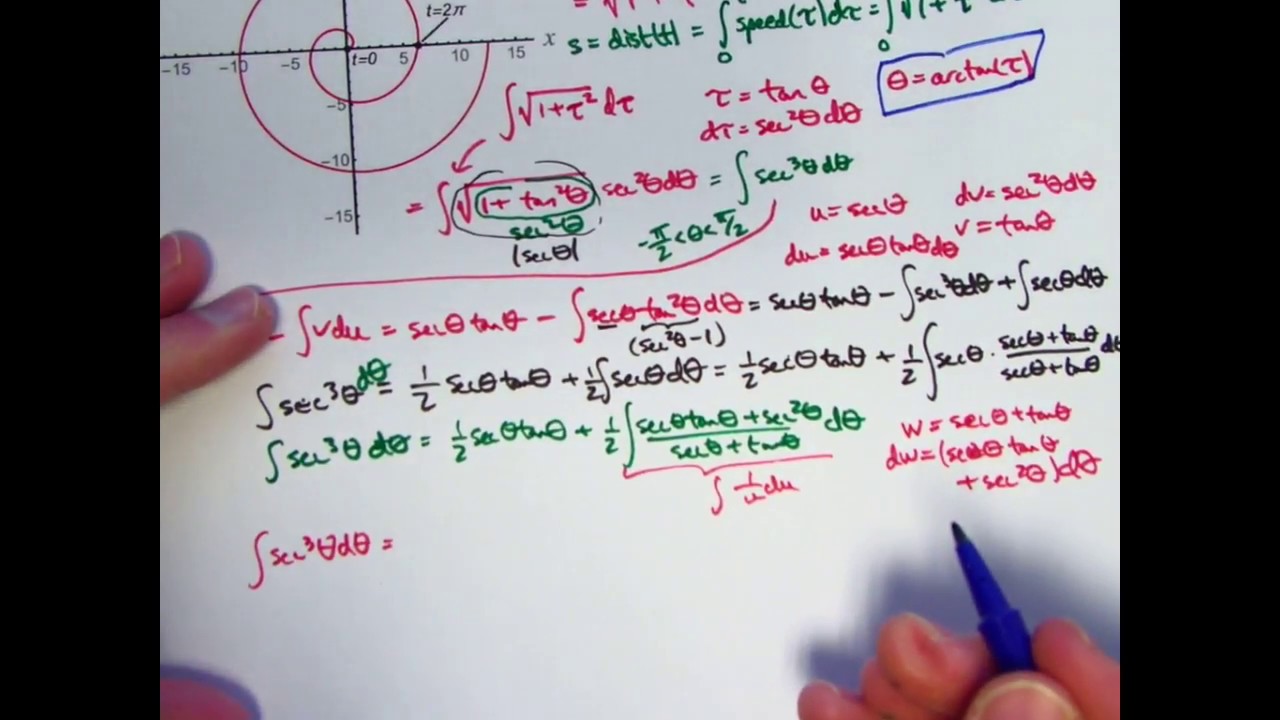 t=2π
x
-15 -10 -5 t=0 5 10 15
-5
-10
-15
s = dist(t) = ∫₀ speed(τ)dτ = ∫₀ √1+τ
θ = arctan(τ)
∫√1+τ² dτ
τ = tan θ
dτ = sec²θ dθ
= ∫√1 + tan²θ sec²θ dθ = ∫ sec³θ dθ
sec²θ
|secθ|
-π/2 < θ < π/2
u = secθ
dv = sec²θ dθ
v = tanθ
du = secθ tanθ dθ
- ∫ v du = secθ tanθ - ∫ secθ tan²θ dθ = secθ tanθ - ∫ sec³θ dθ + ∫ secθ dθ
(sec²θ - 1)
∫ sec³θ dθ = 1/2 secθ tanθ + 1/2 ∫ secθ dθ = 1/2 secθ tanθ + 1/2 ∫ secθ · secθ + tanθ / secθ + tanθ dθ
∫ sec³θ dθ = 1/2 secθ tanθ + 1/2 ∫ secθ tanθ + sec²θ / secθ + tanθ dθ
∫ 1/u du
w = secθ + tanθ
dw = (secθ tanθ
+ sec²θ) dθ
∫ sec³θ dθ =